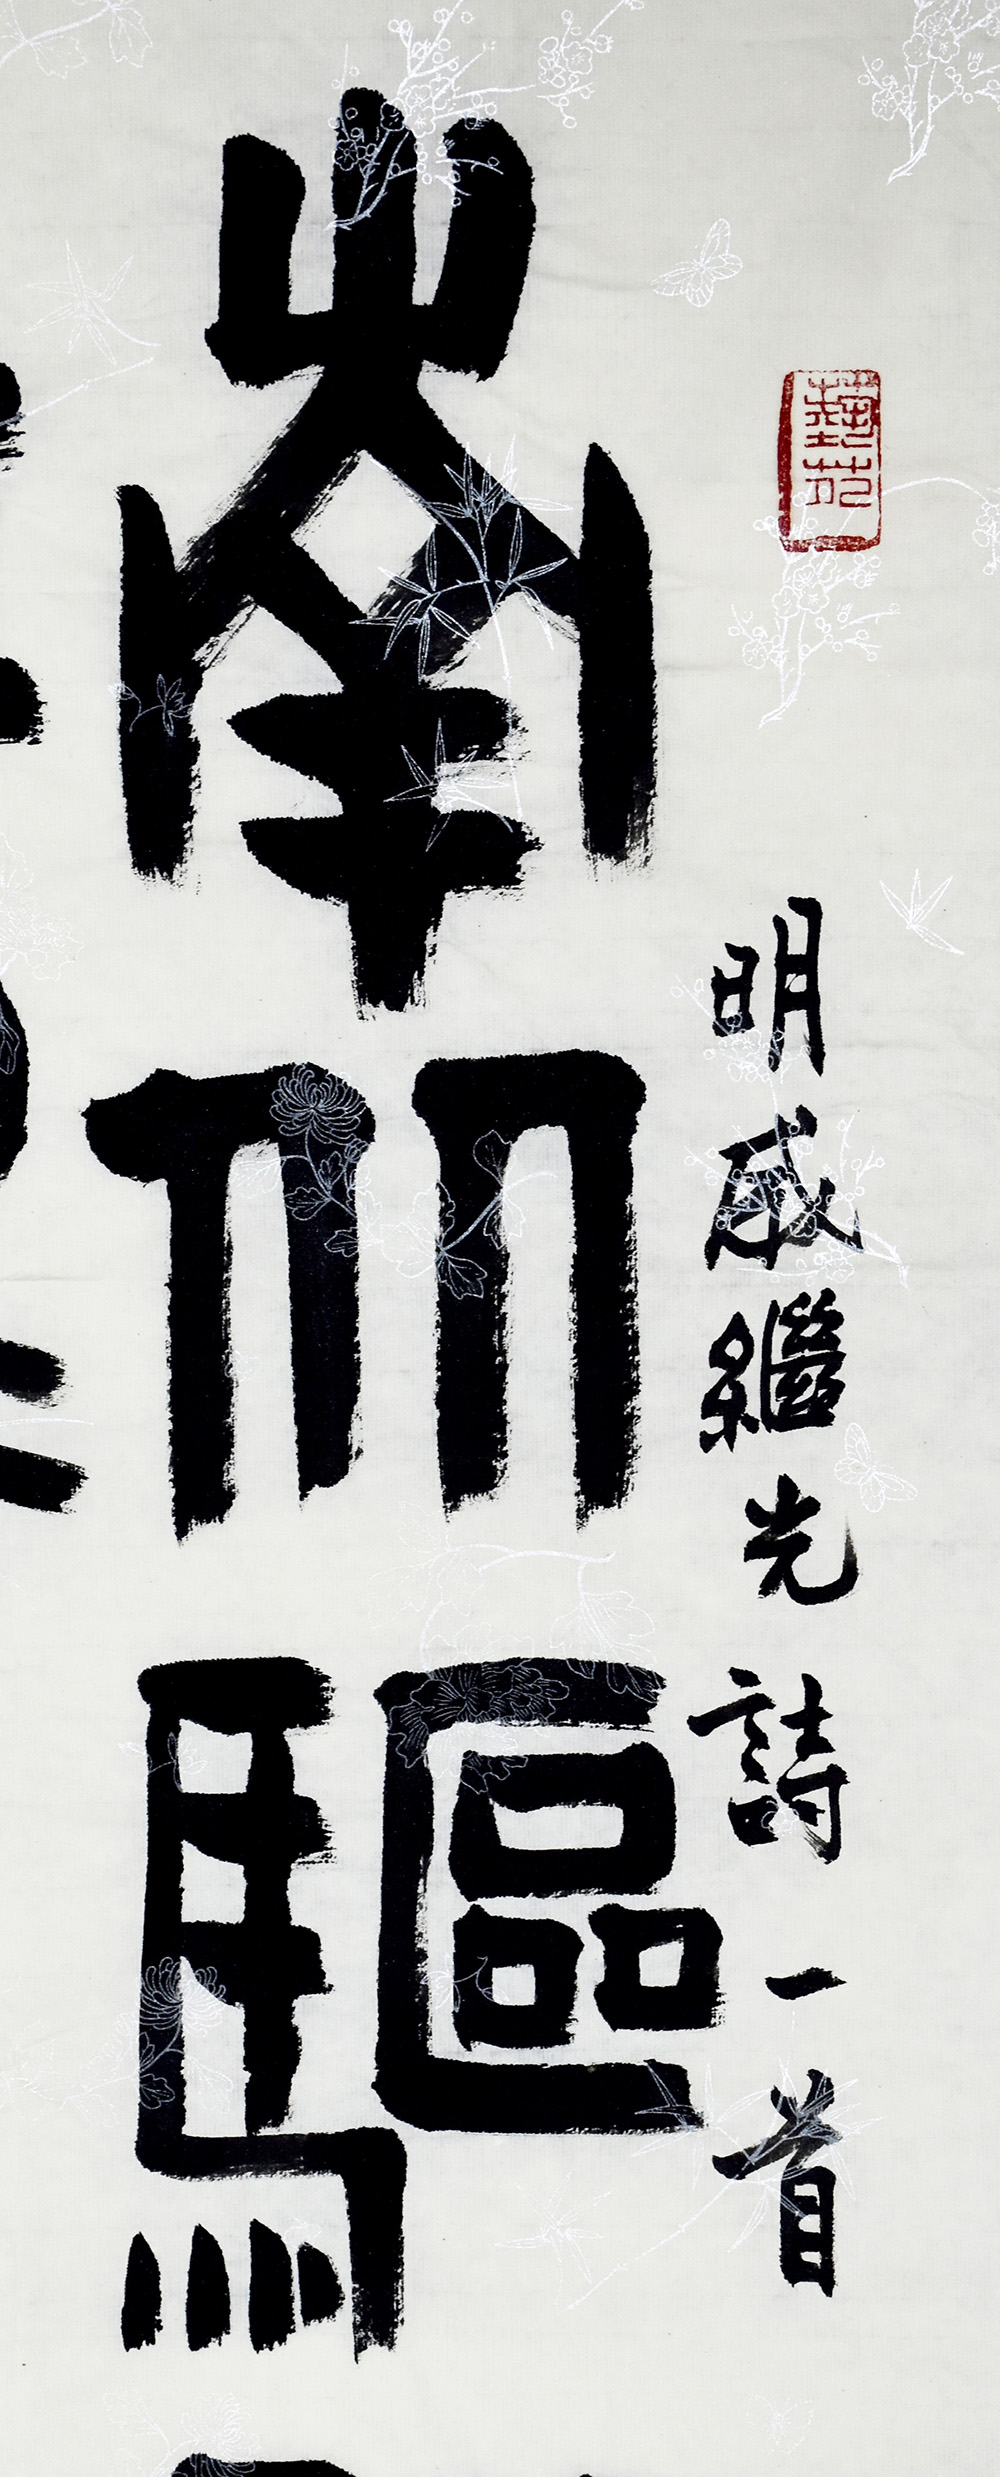 藝苑
明戚繼光詩一首
南北驅